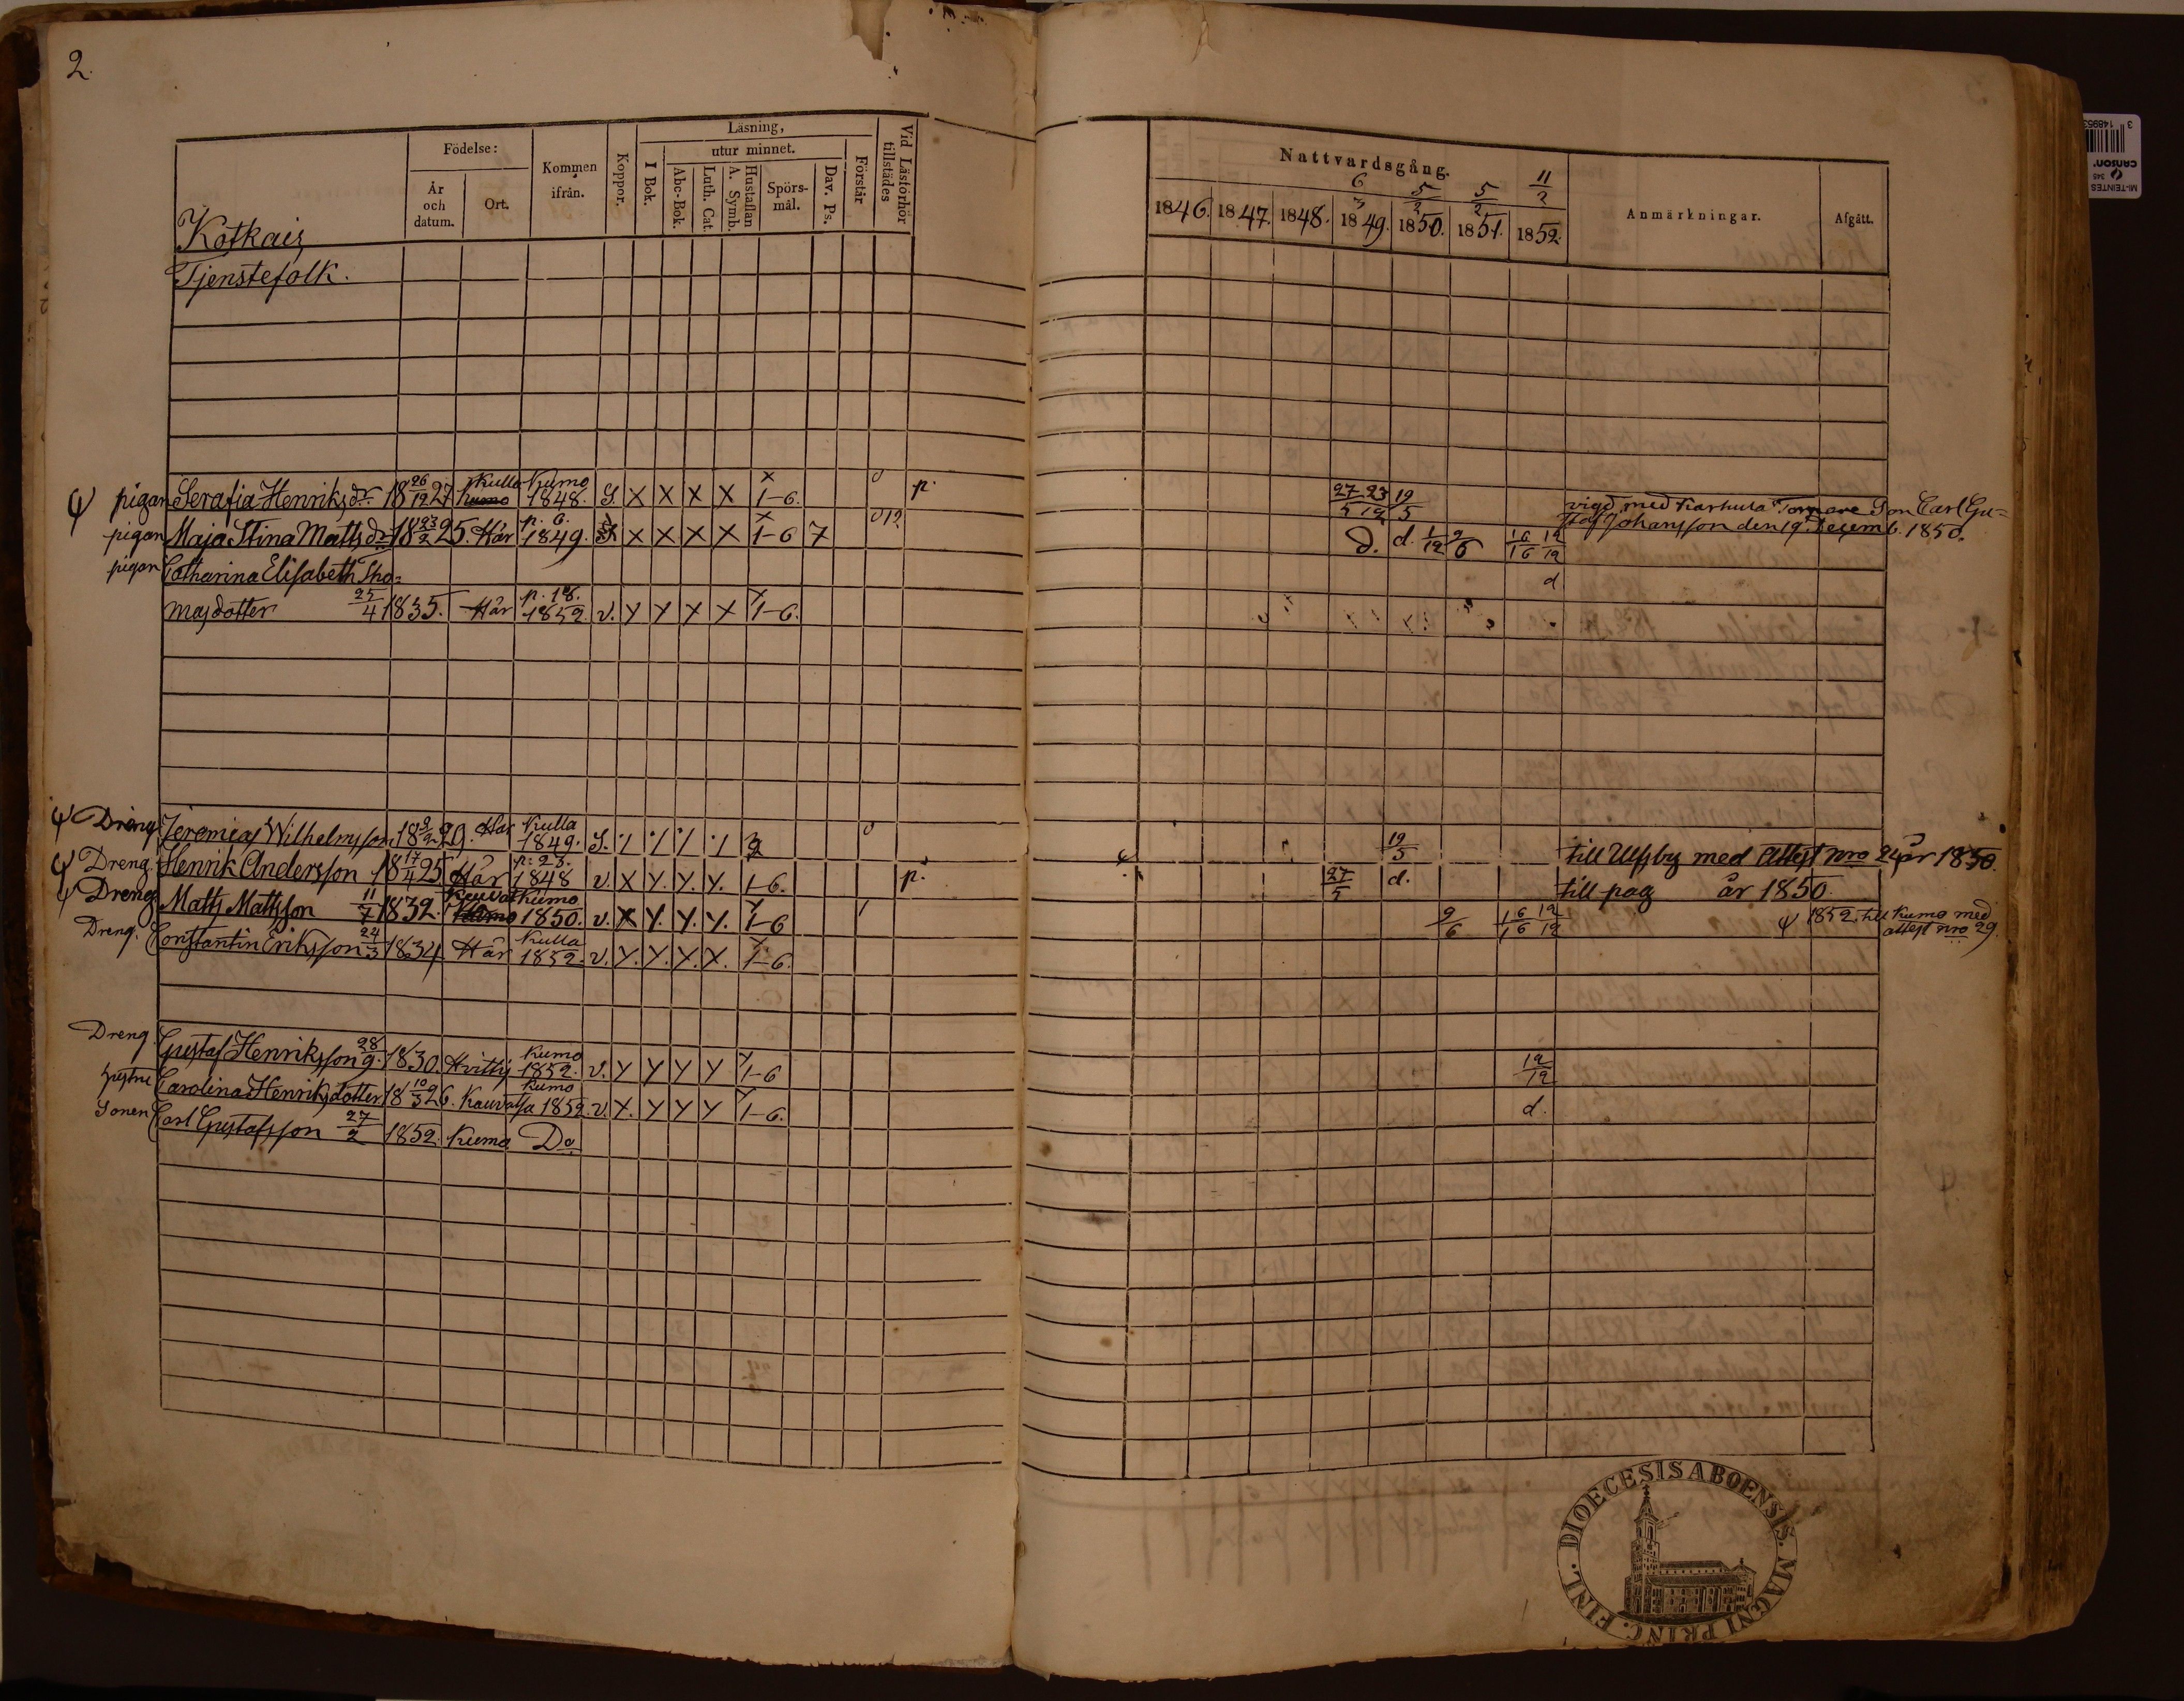 2.
Kotkais
Födelse:
År och datum.
Ort.
Kommen ifrån.
Koppor.
Läsning,
I Bok.
utur minnet.
Abc-Bok.
Luth. Cat.
Hustaflan A. Symb.
Spörsmål.
Dav. Ps.
Förstår
Vid Läsförhör tillstädes
Nattvardsgång.
6 5/2 5/2 11/2
1846. 1847. 1848. 1849. 1850. 1851. 1852.
Anmärkningar.
Afgått.
Tjenstefolk.
pigan Serafia Henriksdr 18 26/12 27 Kulla Kumo Kumo 1848. S. X X X X X 1-6. p. 27/5 23/12 19/5 vigd med Karhula Tornare Son Carl Gu=
staf Johansson den 19. Decemb. 1850.
pigan Maja Stina Mattsdr 18 23/2 25. Här p. 6. 1849. X X X X X 1-6 7 012 d. d. 1/12 9/6 16/16 12/12
pigan Catharina Elisabeth Tho=
masdotter 25/4 1835. Här p. 18. 1852. v. Y Y X X 1-6. d
Dräng Jeremias Wilhelmsson 18 9/2 29. Här Kulla 1849. S. 19/5 till Ulfsby med Attest nro 24 år 1850.
Dreng. Henrik Andersson 18 17/4 25 Här p. 23. 1848 v. X Y. Y. Y. 1-6. p. 27/5 d. till pag år 1850.
Dreng. Matts Mattsson 11/7 1832. Kauvat Kumo 1850. v. X Y. Y. Y. 1-6 9/6 16/16 12/12 1852. till Kumo med
attest nro 29.
Dreng. Constantin Eriksson 24/3 1834 Här Kulla 1852. v. Y. Y. Y. X. 1-6.
Dreng. Gustaf Henriksson 28/9. 1830. Hvittis Kumo 1852. v. Y Y Y Y 1-6 12/12
hustru Carolina Henriksdotter 18 10/3 26. Kauvatsa Kumo 1852. v. X. Y Y Y 1-6. d.
Sonen Carl Gustafsson 27/2 1852. Kumo Do
DIOECESIS ABOENSIS. MAGNI PRINC. FINL.
CANSON
MI-TEINTES
345
3 148953